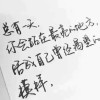 总有一天
你会站在最亮的地方
活成自己曾经渴望的
模样。